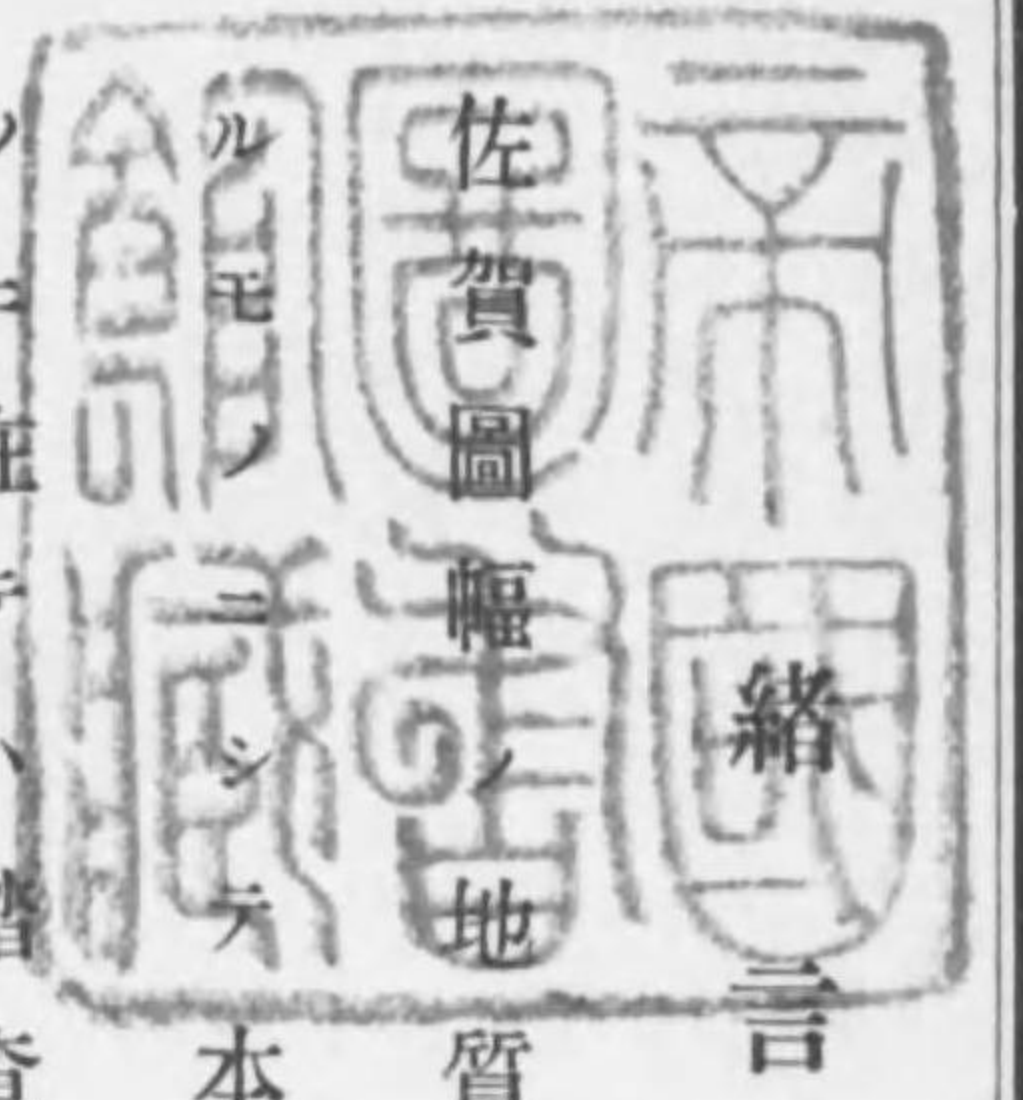 緒言
佐賀圖幅ノ地質
ルモノニシテ本
帝國
圖書
館藏